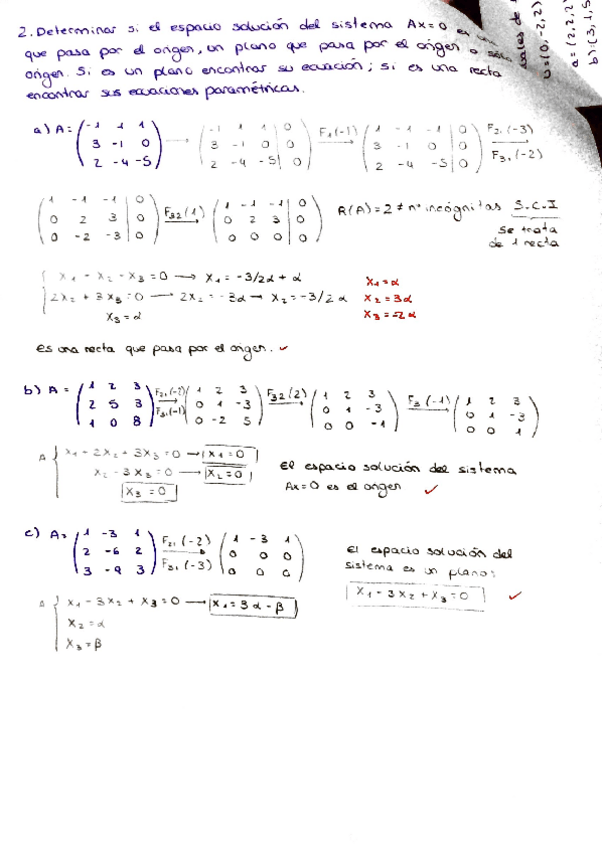 2. Determinar si el espacio solución del sistema Ax=0 es un
que pasa por el origen, un plano que pasa por el origen o sólo
origen. Si es un plano encontrar su ecuación; si es una recta
encontrar sus ecuaciones paramétricas.
sales de
u=(0,-2,2)
a=(2,2,2)
b)=(3,1,5
a) A= (-1 1 1; 3 -1 0; 2 -4 -5) → (-1 1 1 | 0; 3 -1 0 | 0; 2 -4 -5 | 0) F1(-1) → (1 -1 -1 | 0; 3 -1 0 | 0; 2 -4 -5 | 0) F21(-3) F31(-2) →
(1 -1 -1 | 0; 0 2 3 | 0; 0 -2 -3 | 0) F32(1) → (1 -1 -1 | 0; 0 2 3 | 0; 0 0 0 | 0) R(A)=2 ≠ nº incógnitas S.C.I
Se trata
de 1 recta
x1 - x2 - x3 = 0 → x1 = -3/2α + α
2x2 + 3x3 = 0 → 2x2 = -3α → x2 = -3/2 α
x3 = α
x1 = α
x2 = 3α
x3 = -2α
es una recta que pasa por el origen. ✓
b) A = (1 2 3; 2 5 3; 1 0 8) F21(-2) F31(-1) → (1 2 3; 0 1 -3; 0 -2 5) F32(2) → (1 2 3; 0 1 -3; 0 0 -1) F3(-1) → (1 2 3; 0 1 -3; 0 0 1)
x1 - 2x2 + 3x3 = 0 → x1 = 0
x2 - 3x3 = 0 → x2 = 0
x3 = 0
el espacio solución del sistema
Ax=0 es el origen ✓
c) A= (1 -3 1; 2 -6 2; 3 -9 3) F21(-2) F31(-3) → (1 -3 1; 0 0 0; 0 0 0)
el espacio solución del
sistema es un plano:
x1 - 3x2 + x3 = 0 ✓
x1 - 3x2 + x3 = 0 → x1 = 3α - β
x2 = α
x3 = β